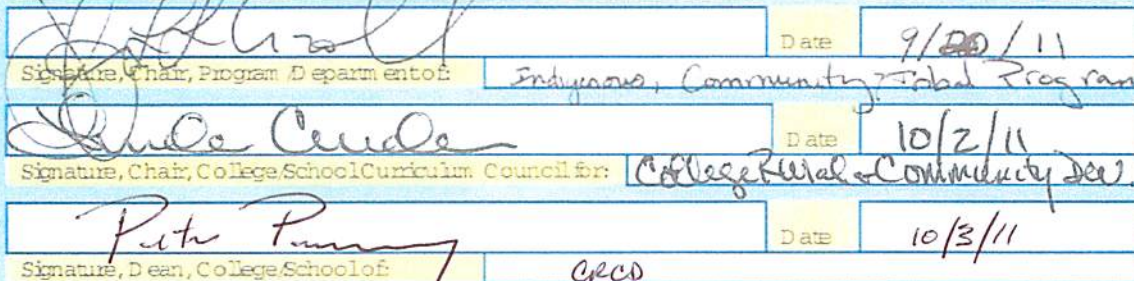 Date 9/20/11
Signature, Chair, Program/Department of: Indigenous, Community, Tribal Program
Date 10/2/11
Signature, Chair, College/School Curriculum Council for: College Rural & Community Dev.
Date 10/3/11
Signature, Dean, College/School of: CRCD